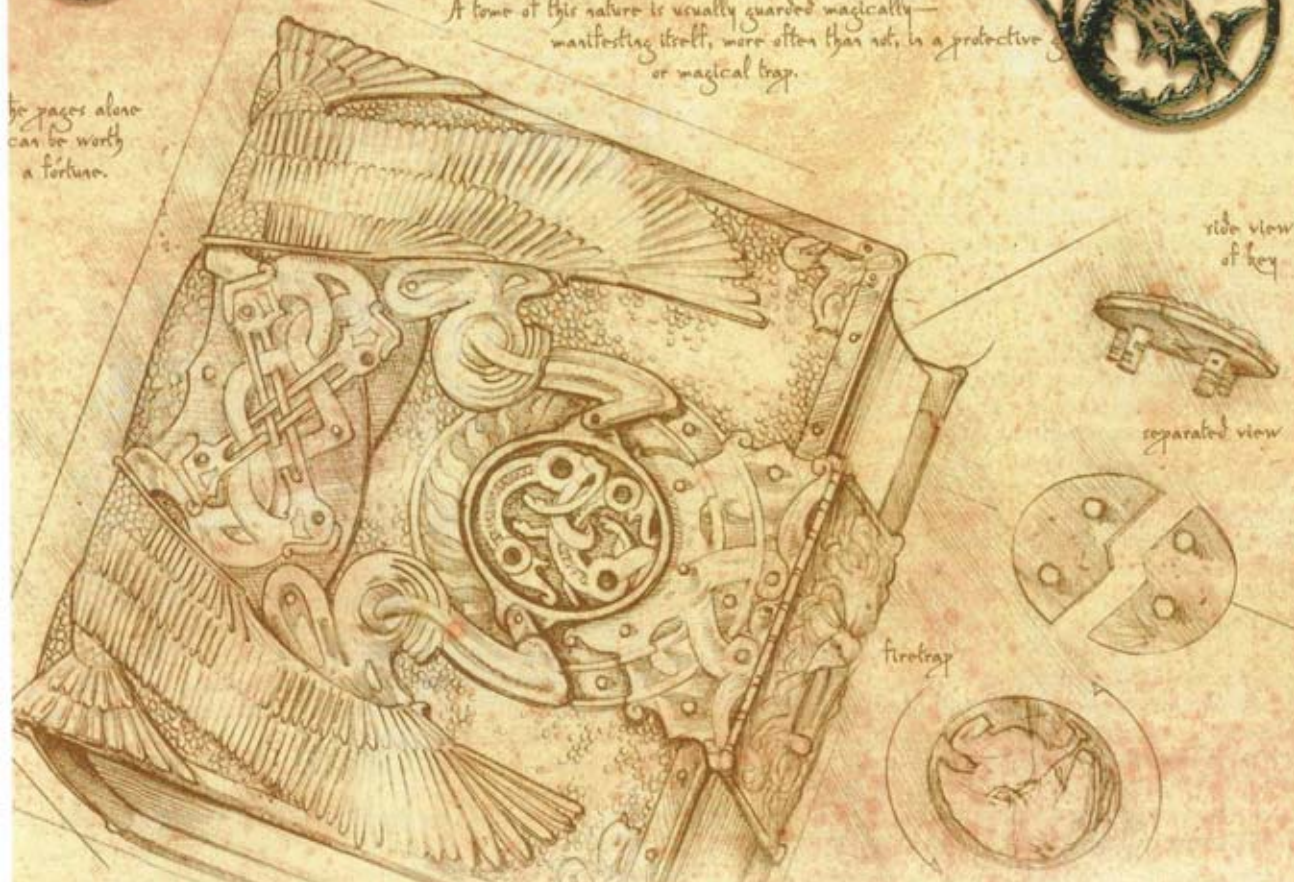 A tome of this nature is usually guarded magically—
manifesting itself, more often than not, in a protective
or magical trap.
he pages alone
can be worth
a fortune.
side view
of key
separated view
firetrap